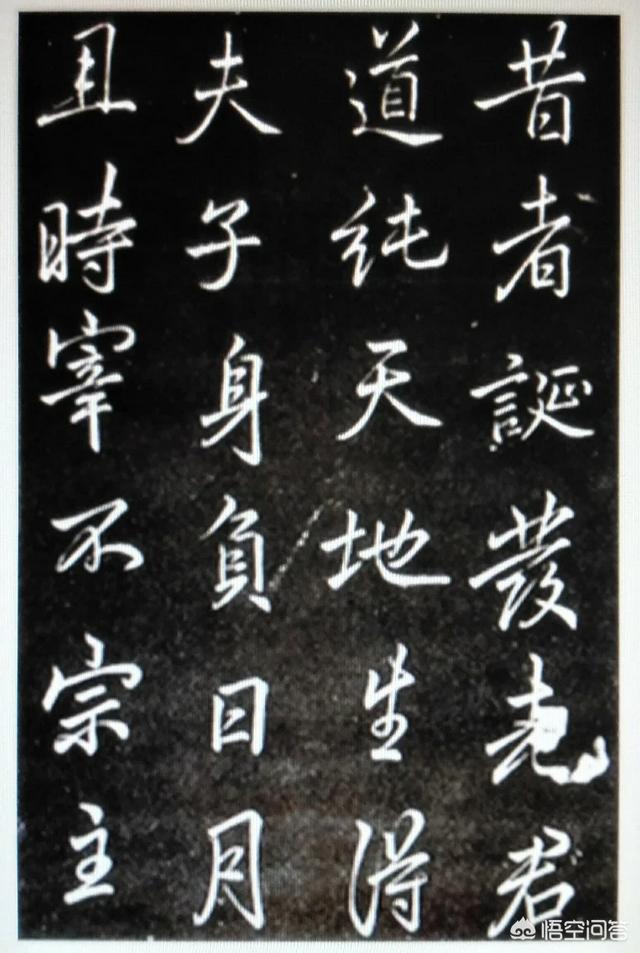 昔者誕發君
道純天地生得
夫子身負日月
且時宰不宗主
悟空问答